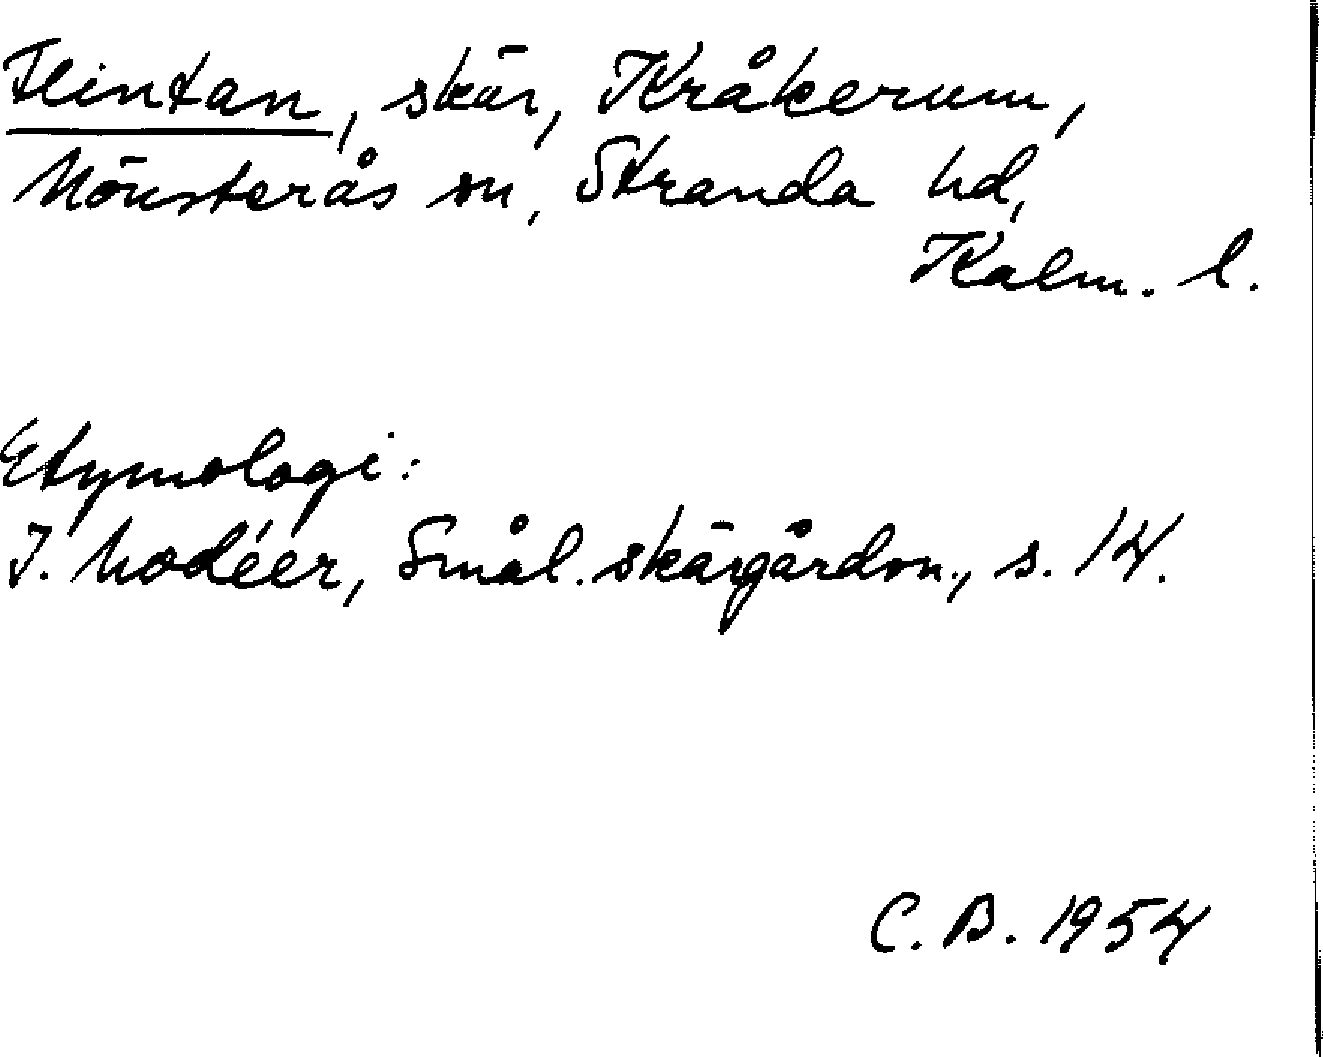 Flintan, skär, Kråkerum,
Mönsterås sn, Stranda hd,
Kalm. l.
Etymologi:
I. Modéer, Smål. skärgårdsn., s. 14.
C. B. 1954